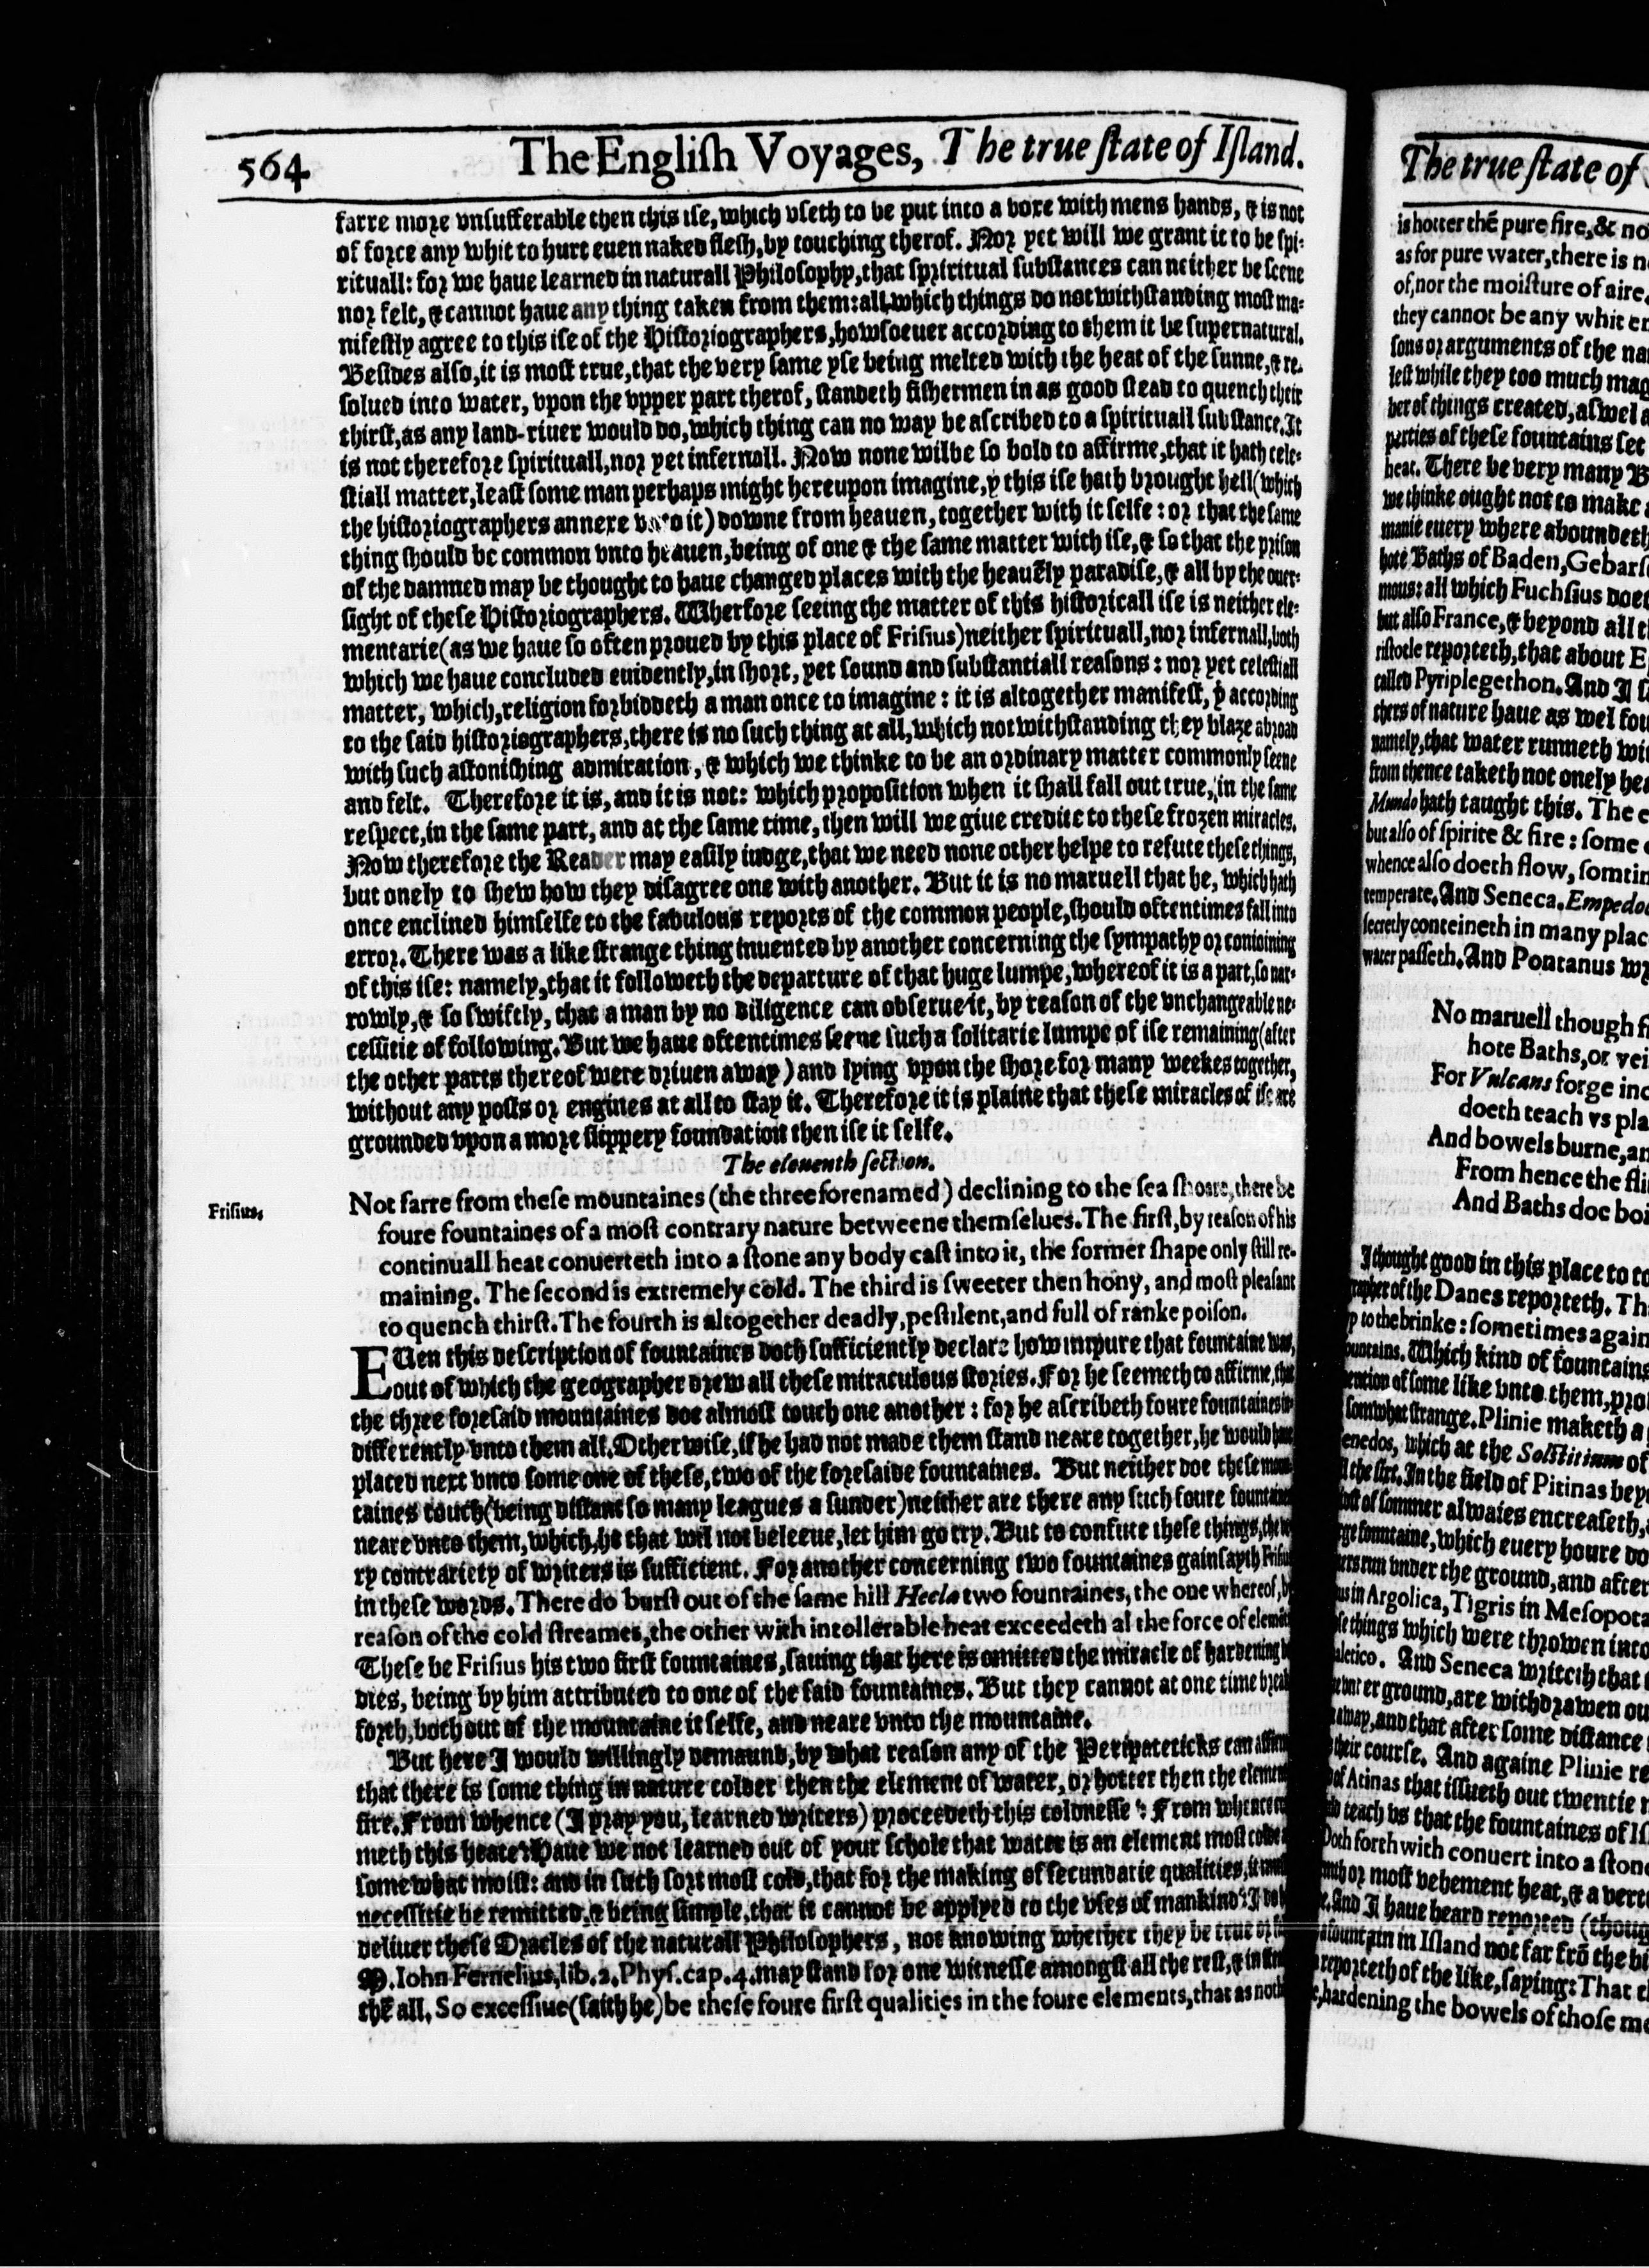 564 The English Voyages, The true state of Island.
farre more vnsufferable then this ise, which vseth to be put into a boxe with mens hands, & is not
of force any whit to hurt euen naked flesh, by touching therof. Nor yet will we grant it to be spi-
rituall: for we haue learned in naturall Philosophy, that spiritual substances can neither be seene
nor felt, & cannot haue any thing taken from them: all which things do notwithstanding most ma-
nifestly agree to this ise of the Historiographers, howsoeuer according to them it be supernatural.
Besides also, it is most true, that the very same yse being melted with the heat of the sunne, & re-
solued into water, vpon the vpper part therof, standeth fishermen in as good stead to quench their
thirst, as any land-riuer would do, which thing can no way be ascribed to a spirituall substance. It
is not therefore spirituall, nor yet infernall. Now none wilbe so bold to affirme, that it hath cele-
stiall matter, least some man perhaps might hereupon imagine, ẏ this ise hath brought hell (which
the historiographers annexe vnto it) downe from heauen, together with it selfe: or that the same
thing should be common vnto heauen, being of one & the same matter with ise, & so that the prison
of the damned may be thought to haue changed places with the heauẽly paradise, & all by the ouer-
sight of these Historiographers. Wherfore seeing the matter of this historicall ise is neither ele-
mentarie (as we haue so often proued by this place of Frisius) neither spirituall, nor infernall, both
which we haue concluded euidently, in short, yet sound and substantiall reasons: nor yet celestiall
matter, which, religion forbiddeth a man once to imagine: it is altogether manifest, ẏ according
to the said historiographers, there is no such thing at all, which notwithstanding they blaze abroad
with such astonishing admiration, & which we thinke to be an ordinary matter commonly seene
and felt. Therefore it is, and it is not: which proposition when it shall fall out true, in the same
respect, in the same part, and at the same time, then will we giue credite to these frozen miracles.
Now therefore the Reader may easily iudge, that we need none other helpe to refute these things,
but onely to shew how they disagree one with another. But it is no maruell that he, which hath
once enclined himselfe to the fabulous reports of the common people, should oftentimes fall into
error. There was a like strange thing inuented by another concerning the sympathy or conioining
of this ise: namely, that it followeth the departure of that huge lumpe, whereof it is a part, so nar-
rowly, & so swiftly, that a man by no diligence can obserue it, by reason of the vnchangeable ne-
cessitie of following. But we haue oftentimes seene such a solitarie lumpe of ise remaining (after
the other parts thereof were driuen away) and lying vpon the shore for many weekes together,
without any posts or engines at all to stay it. Therefore it is plaine that these miracles of ise are
grounded vpon a more slippery foundation then ise it selfe.
The eleuenth section.
Frisius.
Not farre from these mountaines (the three forenamed) declining to the sea shoare, there be
foure fountaines of a most contrary nature betweene themselues. The first, by reason of his
continuall heat conuerteth into a stone any body cast into it, the former shape only still re-
maining. The second is extremely cold. The third is sweeter then hony, and most pleasant
to quench thirst. The fourth is altogether deadly, pestilent, and full of ranke poison.
EUen this description of fountaines doth sufficiently declare how impure that fountaine was,
out of which the geographer drew all these miraculous stories. For he seemeth to affirme, that
the three foresaid mountaines doe almost touch one another: for he ascribeth foure fountaines
differently vnto them all. Otherwise, if he had not made them stand neare together, he would haue
placed next vnto some one of these, two of the foresaide fountaines. But neither doe these
taines touch (being distant so many leagues a sunder) neither are there any such foure fountaines
neare vnto them, which, he that wil not beleeue, let him go try. But to confute these things, the
ry contrariety of writers is sufficient. For another concerning two fountaines gainsayth Frisius
in these words. There do burst out of the same hill Hecla two fountaines, the one whereof, by
reason of the cold streames, the other with intollerable heat exceedeth al the force of
These be Frisius his two first fountaines, sauing that here is omitted the miracle of hardening
dies, being by him attributed to one of the said fountaines. But they cannot at one time break
forth, both out of the mountaine it selfe, and neare vnto the mountaine.
But here I would willingly demaund, by what reason any of the Peripateticks can affirme
that there is some thing in nature colder then the element of water, or hotter then the element
fire. From whence (I pray you, learned writers) proceedeth this coldnesse? From whence
meth this heate? Haue we not learned out of your schole that water is an element most
somewhat moist: and in such sort most cold, that for the making of secundarie qualities, it
necessitie be remitted, & being simple, that it cannot be applyed to the vses of mankind? I do
deliuer these Oracles of the naturall Philosophers, not knowing whether they be true or
M. Iohn Fernelius, lib. 2. Phys. cap. 4. may stand for one witnesse amongst all the rest, & in
thẽ all. So excessiue (saith he) be these foure first qualities in the foure elements, that as
The true state of
is hotter thẽ pure fire, & no
as for pure water, there is
of, nor the moisture of aire,
they cannot be any whit
sons or arguments of the
lest while they too much
ber of things created, aswel
perties of these fountains set
heat. There be very many
we thinke ought not to make
manie euery where aboundeth
hote Baths of Baden,
mous: all which Fuchsius
but also France, & beyond all
ristotle reporteth, that about
called Pyriplegethon. And I
thers of nature haue as wel
namely, that water runneth
from thence taketh not onely
Mundo hath taught this. The
but also of spirite & fire: some
whence also doeth flow,
temperate. And Seneca.
secretly conteineth in many
water passeth. And Pontanus
No maruell though
hote Baths, or
For Vulcans forge
doeth teach vs
And bowels burne,
From hence the
And Baths doe
I thought good in this place to
grapher of the Danes reporteth.
to the brinke: sometimes
Which kind of fountains
of some like vnto them,
somwhat strange. Plinie maketh a
which at the Solstitium of
In the field of Pitinas
of sommer alwaies encreaseth,
fountaine, which euery houre
run vnder the ground, and after
in Argolica, Tigris in
things which were throwen into
And Seneca writeth that
ground, are withdrawen
away, and that after some distance
their course. And againe Plinie
of Atinas that issueth out twentie
teach vs that the fountaines of
Doth forth with conuert into a
or most vehement heat, & a
And I haue heard reported
fountain in Island not far frõ the
reporteth of the like, saying: That
hardening the bowels of those